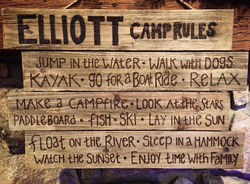 ELLIOTT CAMP RULES
JUMP IN THE WATER • WALK WITH DOGS
KAYAK • GO FOR A BOAT RIDE • RELAX
MAKE A CAMPFIRE • LOOK AT THE STARS
PADDLEBOARD • FISH • SKI • LAY IN THE SUN
FLOAT ON THE RIVER • SLEEP IN A HAMMOCK
WATCH THE SUNSET • ENJOY TIME WITH FAMILY